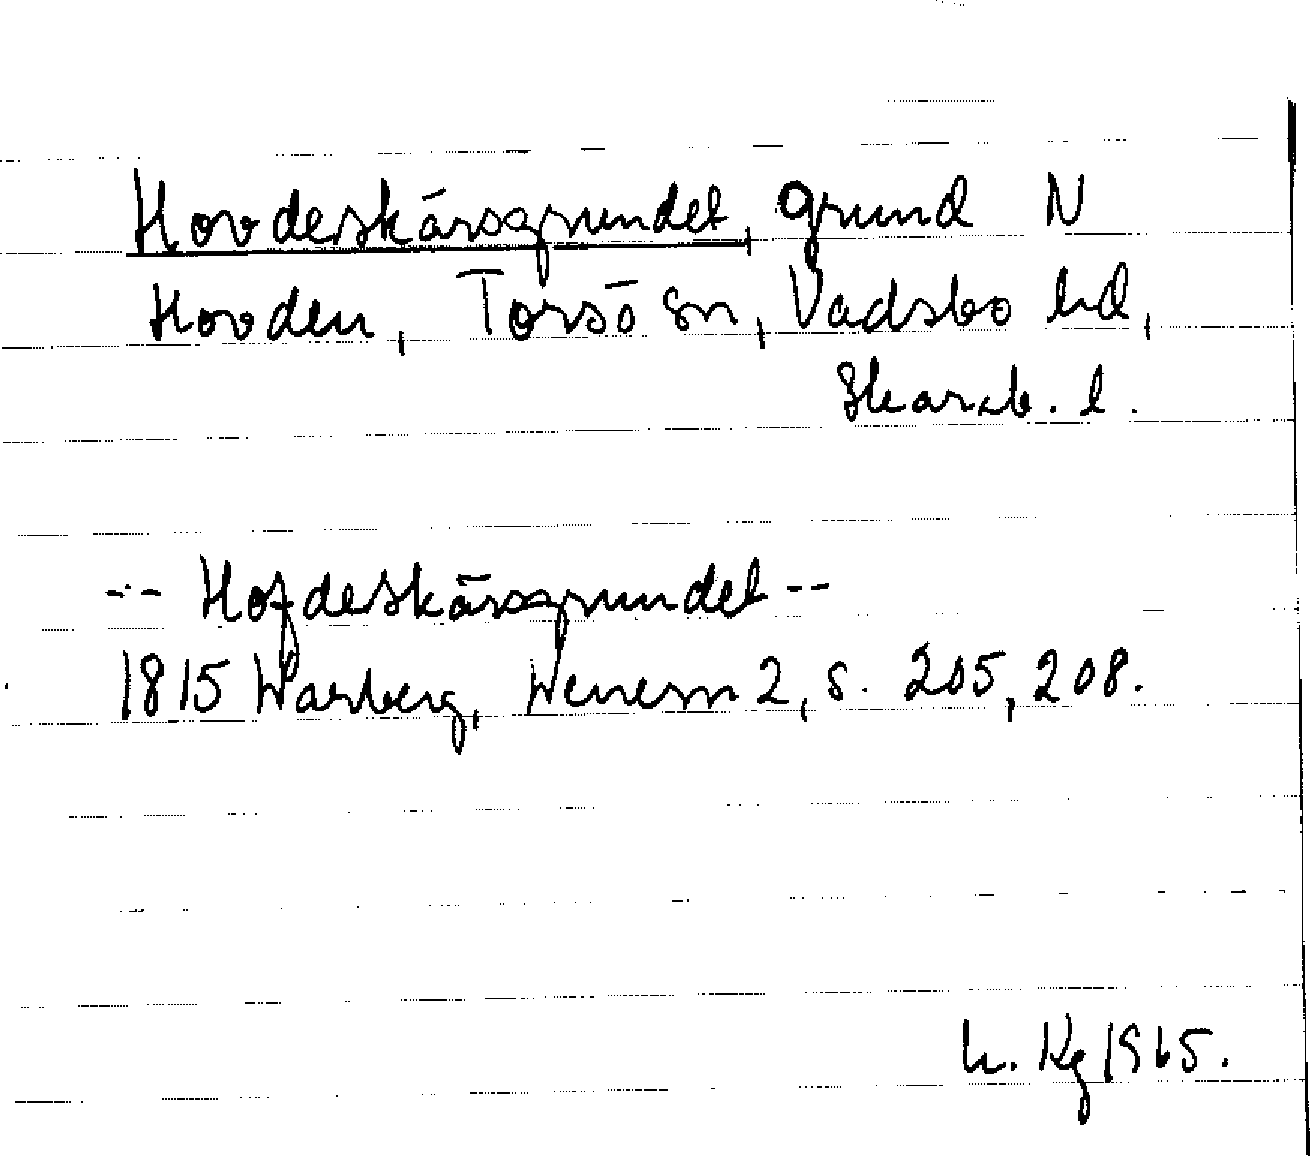 Hovdeskärsgrundet, grund N
Hovden, Torsö sn, Vadsbo hd,
Skarab. l.
-- Hofdeskärsgrundet --
1815 Warberg, Wenern 2, s. 205, 208.
h. Kg 1965.